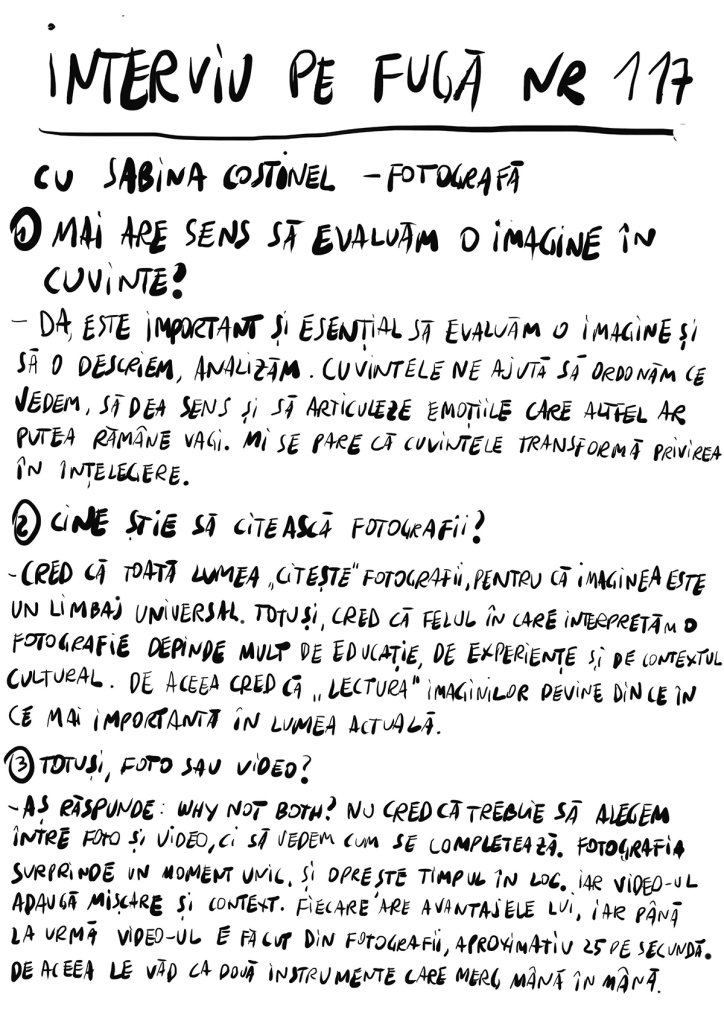 INTERVIU PE FUGĂ NR 117
CU SABINA COSTINEL - FOTOGRAFĂ
① MAI ARE SENS SĂ EVALUĂM O IMAGINE ÎN
CUVINTE?
- DA, ESTE IMPORTANT ȘI ESENȚIAL SĂ EVALUĂM O IMAGINE ȘI
SĂ O DESCRIEM, ANALIZĂM. CUVINTELE NE AJUTĂ SĂ ORDONĂM CE
VEDEM, SĂ DEA SENS ȘI SĂ ARTICULEZE EMOȚIILE CARE ALTFEL AR
PUTEA RĂMÂNE VAGI. MI SE PARE CĂ CUVINTELE TRANSFORMĂ PRIVIREA
ÎN ÎNȚELEGERE.
② CINE ȘTIE SĂ CITEASCĂ FOTOGRAFII?
- CRED CĂ TOATĂ LUMEA „CITEȘTE" FOTOGRAFII, PENTRU CĂ IMAGINEA ESTE
UN LIMBAJ UNIVERSAL. TOTUȘI, CRED CĂ FELUL ÎN CARE INTERPRETĂM O
FOTOGRAFIE DEPINDE MULT DE EDUCAȚIE, DE EXPERIENȚE ȘI DE CONTEXTUL
CULTURAL. DE ACEEA CRED CĂ „LECTURA" IMAGINILOR DEVINE DIN CE ÎN
CE MAI IMPORTANTĂ ÎN LUMEA ACTUALĂ.
③ TOTUȘI, FOTO SAU VIDEO?
- AȘ RĂSPUNDE: WHY NOT BOTH? NU CRED CĂ TREBUIE SĂ ALEGEM
ÎNTRE FOTO ȘI VIDEO, CI SĂ VEDEM CUM SE COMPLETEAZĂ. FOTOGRAFIA
SURPRINDE UN MOMENT UNIC, ȘI OPREȘTE TIMPUL ÎN LOC, IAR VIDEO-UL
ADAUGĂ MIȘCARE ȘI CONTEXT. FIECARE ARE AVANTAJELE LUI, IAR PÂNĂ
LA URMĂ VIDEO-UL E FĂCUT DIN FOTOGRAFII, APROXIMATIV 25 PE SECUNDĂ.
DE ACEEA LE VĂD CA DOUĂ INSTRUMENTE CARE MERG MÂNĂ ÎN MÂNĂ.